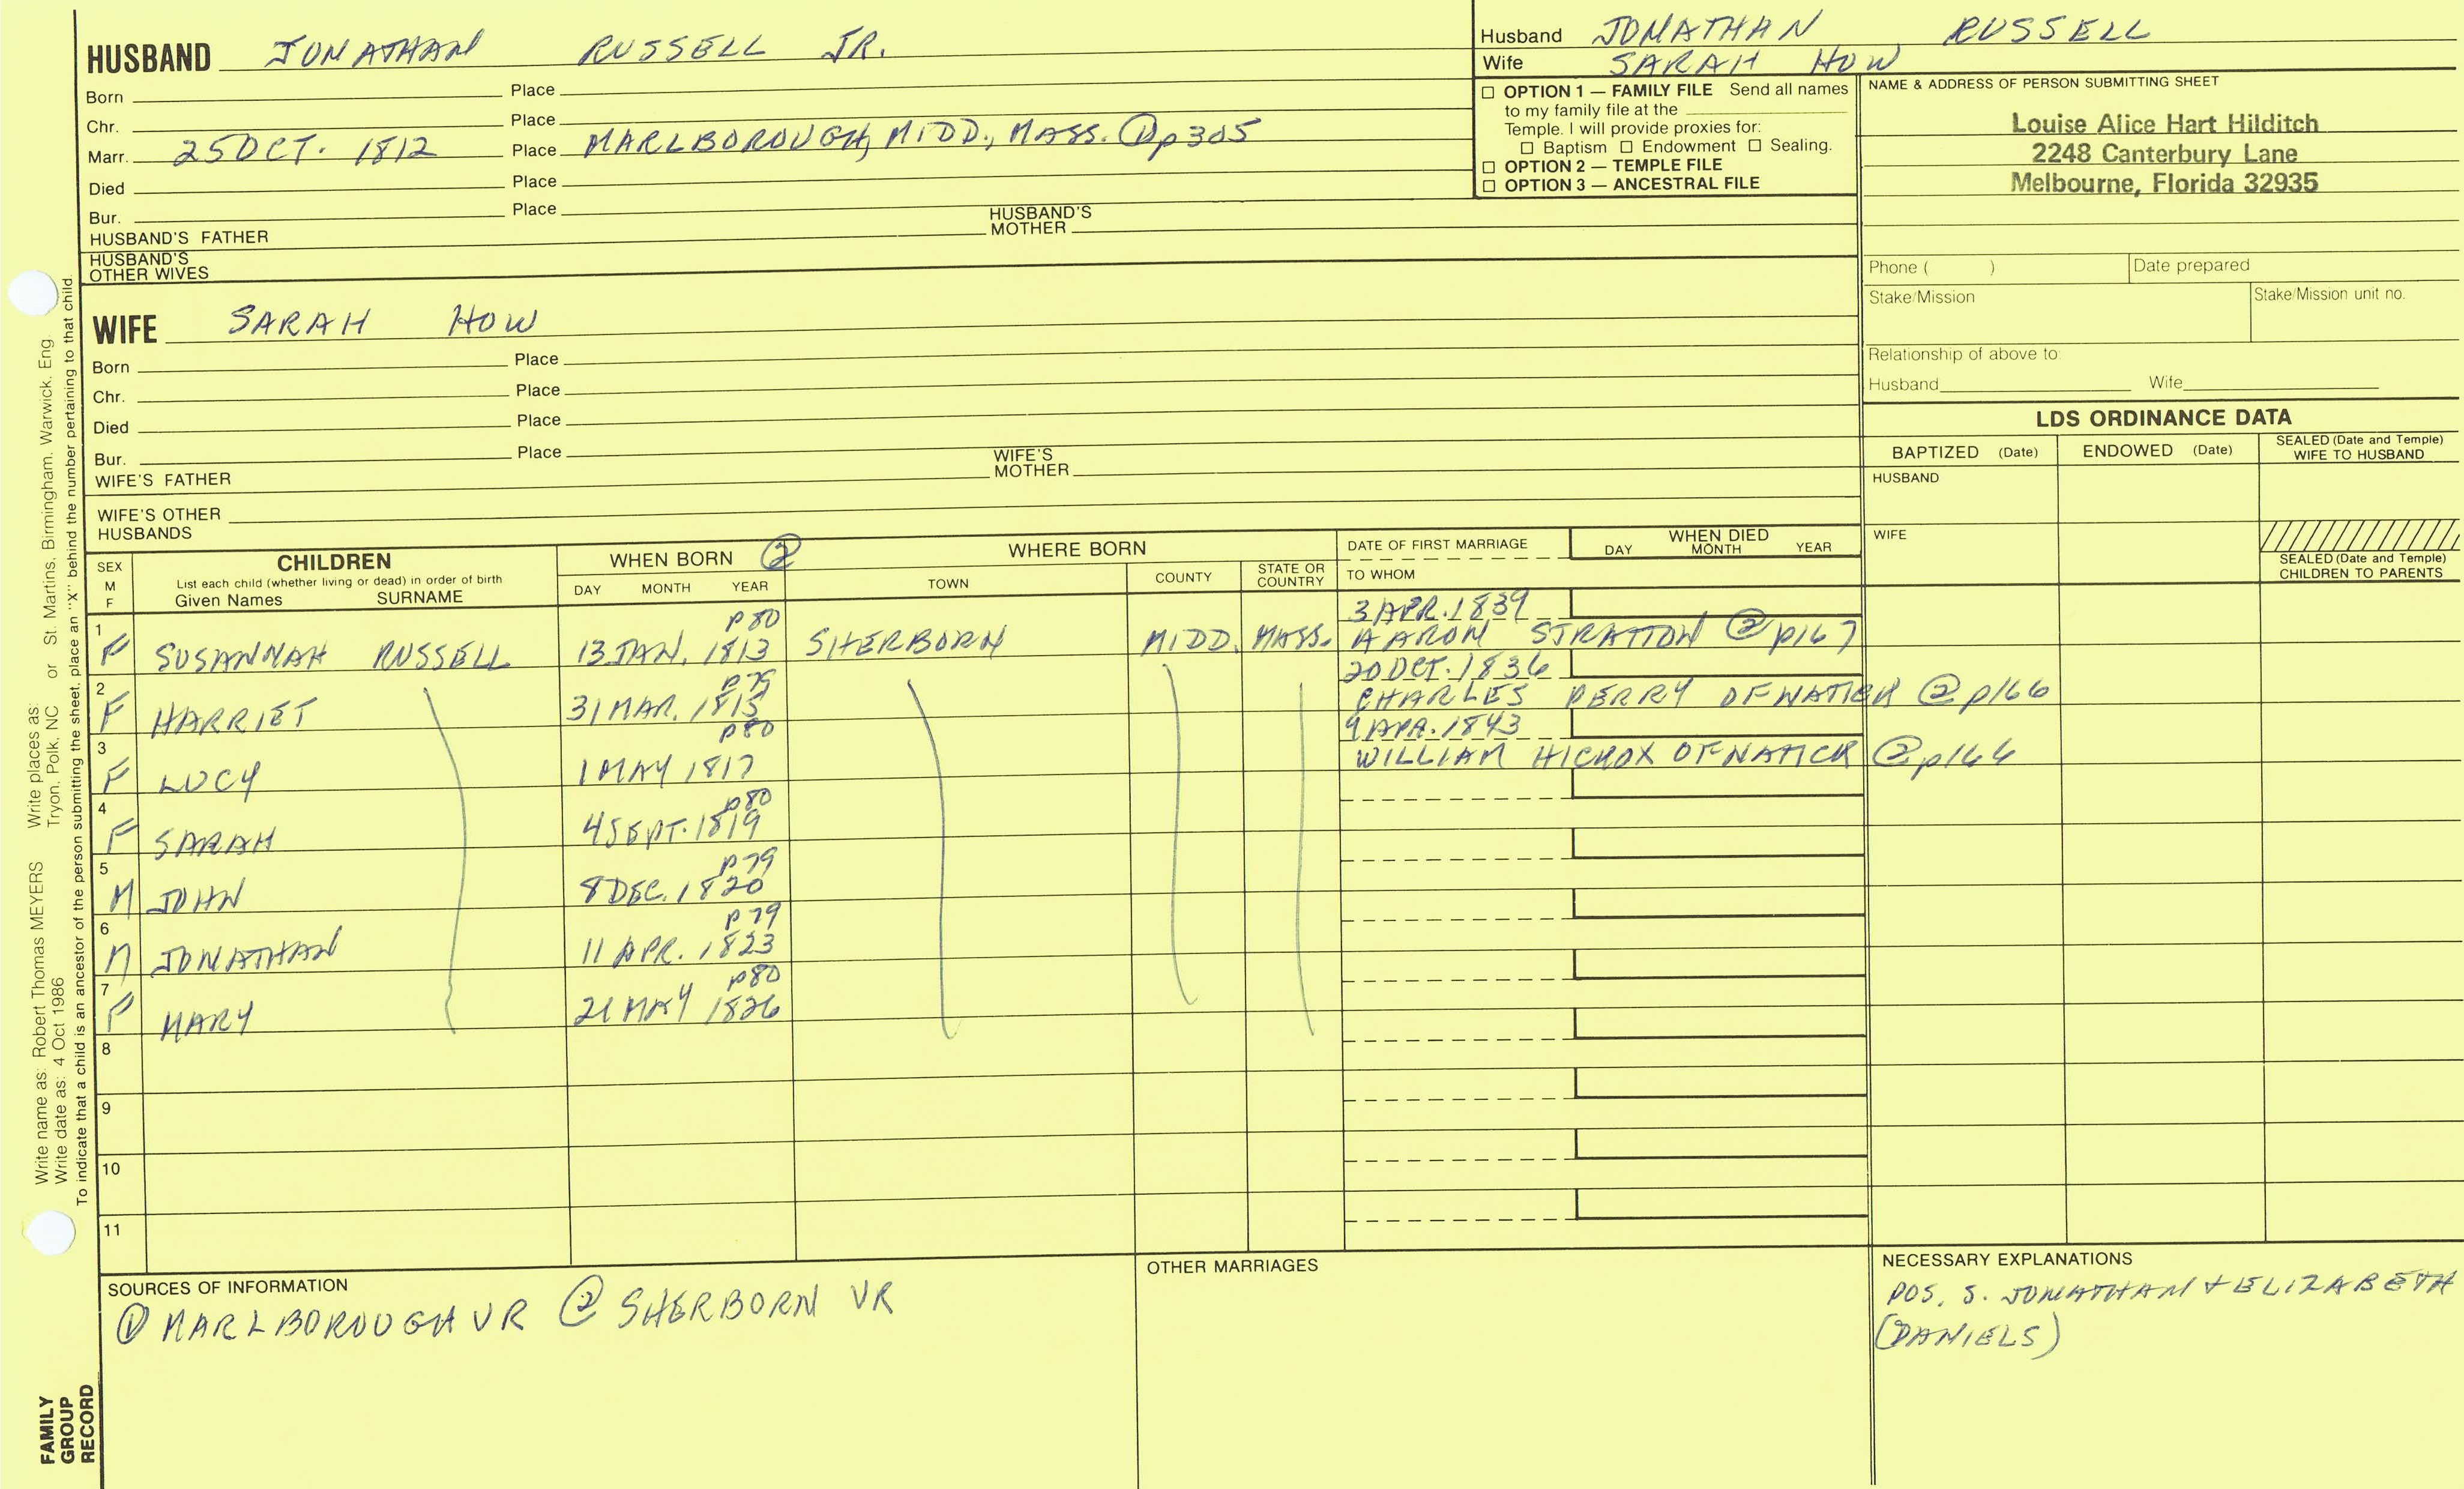 HUSBAND JONATHAN RUSSELL JR.
Born Place
Chr. Place
Marr. 25 OCT. 1812 Place MARLBOROUGH, MIDD., MASS. ① p305
Died Place
Bur. Place
HUSBAND'S FATHER HUSBAND'S MOTHER
HUSBAND'S OTHER WIVES
WIFE SARAH HOW
Born Place
Chr. Place
Died Place
Bur. Place
WIFE'S FATHER WIFE'S MOTHER
WIFE'S OTHER HUSBANDS
Husband JONATHAN RUSSELL
Wife SARAH HOW
☐ OPTION 1 — FAMILY FILE Send all names
to my family file at the
Temple. I will provide proxies for:
☐ Baptism ☐ Endowment ☐ Sealing.
☐ OPTION 2 — TEMPLE FILE
☐ OPTION 3 — ANCESTRAL FILE
NAME & ADDRESS OF PERSON SUBMITTING SHEET
Louise Alice Hart Hilditch
2248 Canterbury Lane
Melbourne, Florida 32935
Phone ( ) Date prepared
Stake/Mission Stake/Mission unit no.
Relationship of above to:
Husband Wife
LDS ORDINANCE DATA
BAPTIZED (Date) ENDOWED (Date) SEALED (Date and Temple) WIFE TO HUSBAND
HUSBAND
WIFE
SEALED (Date and Temple) CHILDREN TO PARENTS
SEX M F
CHILDREN
List each child (whether living or dead) in order of birth
Given Names SURNAME
WHEN BORN ②
DAY MONTH YEAR
WHERE BORN
TOWN COUNTY STATE OR COUNTRY
DATE OF FIRST MARRIAGE
TO WHOM
WHEN DIED
DAY MONTH YEAR
p80 3 APR. 1839
1 F SUSANNAH RUSSELL 13 JAN. 1813 SHERBORN MIDD. MASS. AARON STRATTON ② p167
p79 20 OCT. 1836
2 F HARRIET 31 MAR. 1815 CHARLES PERRY OF NATICK ② p166
p80 9 APR. 1843
3 F LUCY 1 MAY 1817 WILLIAM HICKOX OF NATICK ② p166
p80
4 F SARAH 4 SEPT. 1819
p79
5 M JOHN 8 DEC. 1820
p79
6 M JONATHAN 11 APR. 1823
p80
7 F MARY 21 MAY 1826
8
9
10
11
SOURCES OF INFORMATION
① MARLBOROUGH VR ② SHERBORN VR
OTHER MARRIAGES
NECESSARY EXPLANATIONS
POS. S. JONATHAN + ELIZABETH
(DANIELS)
Write name as: Robert Thomas MEYERS Write places as: Tryon, Polk, NC or St. Martins, Birmingham, Warwick, Eng.
Write date as: 4 Oct 1986
To indicate that a child is an ancestor of the person submitting the sheet, place an "X" behind the number pertaining to that child.
FAMILY
GROUP
RECORD